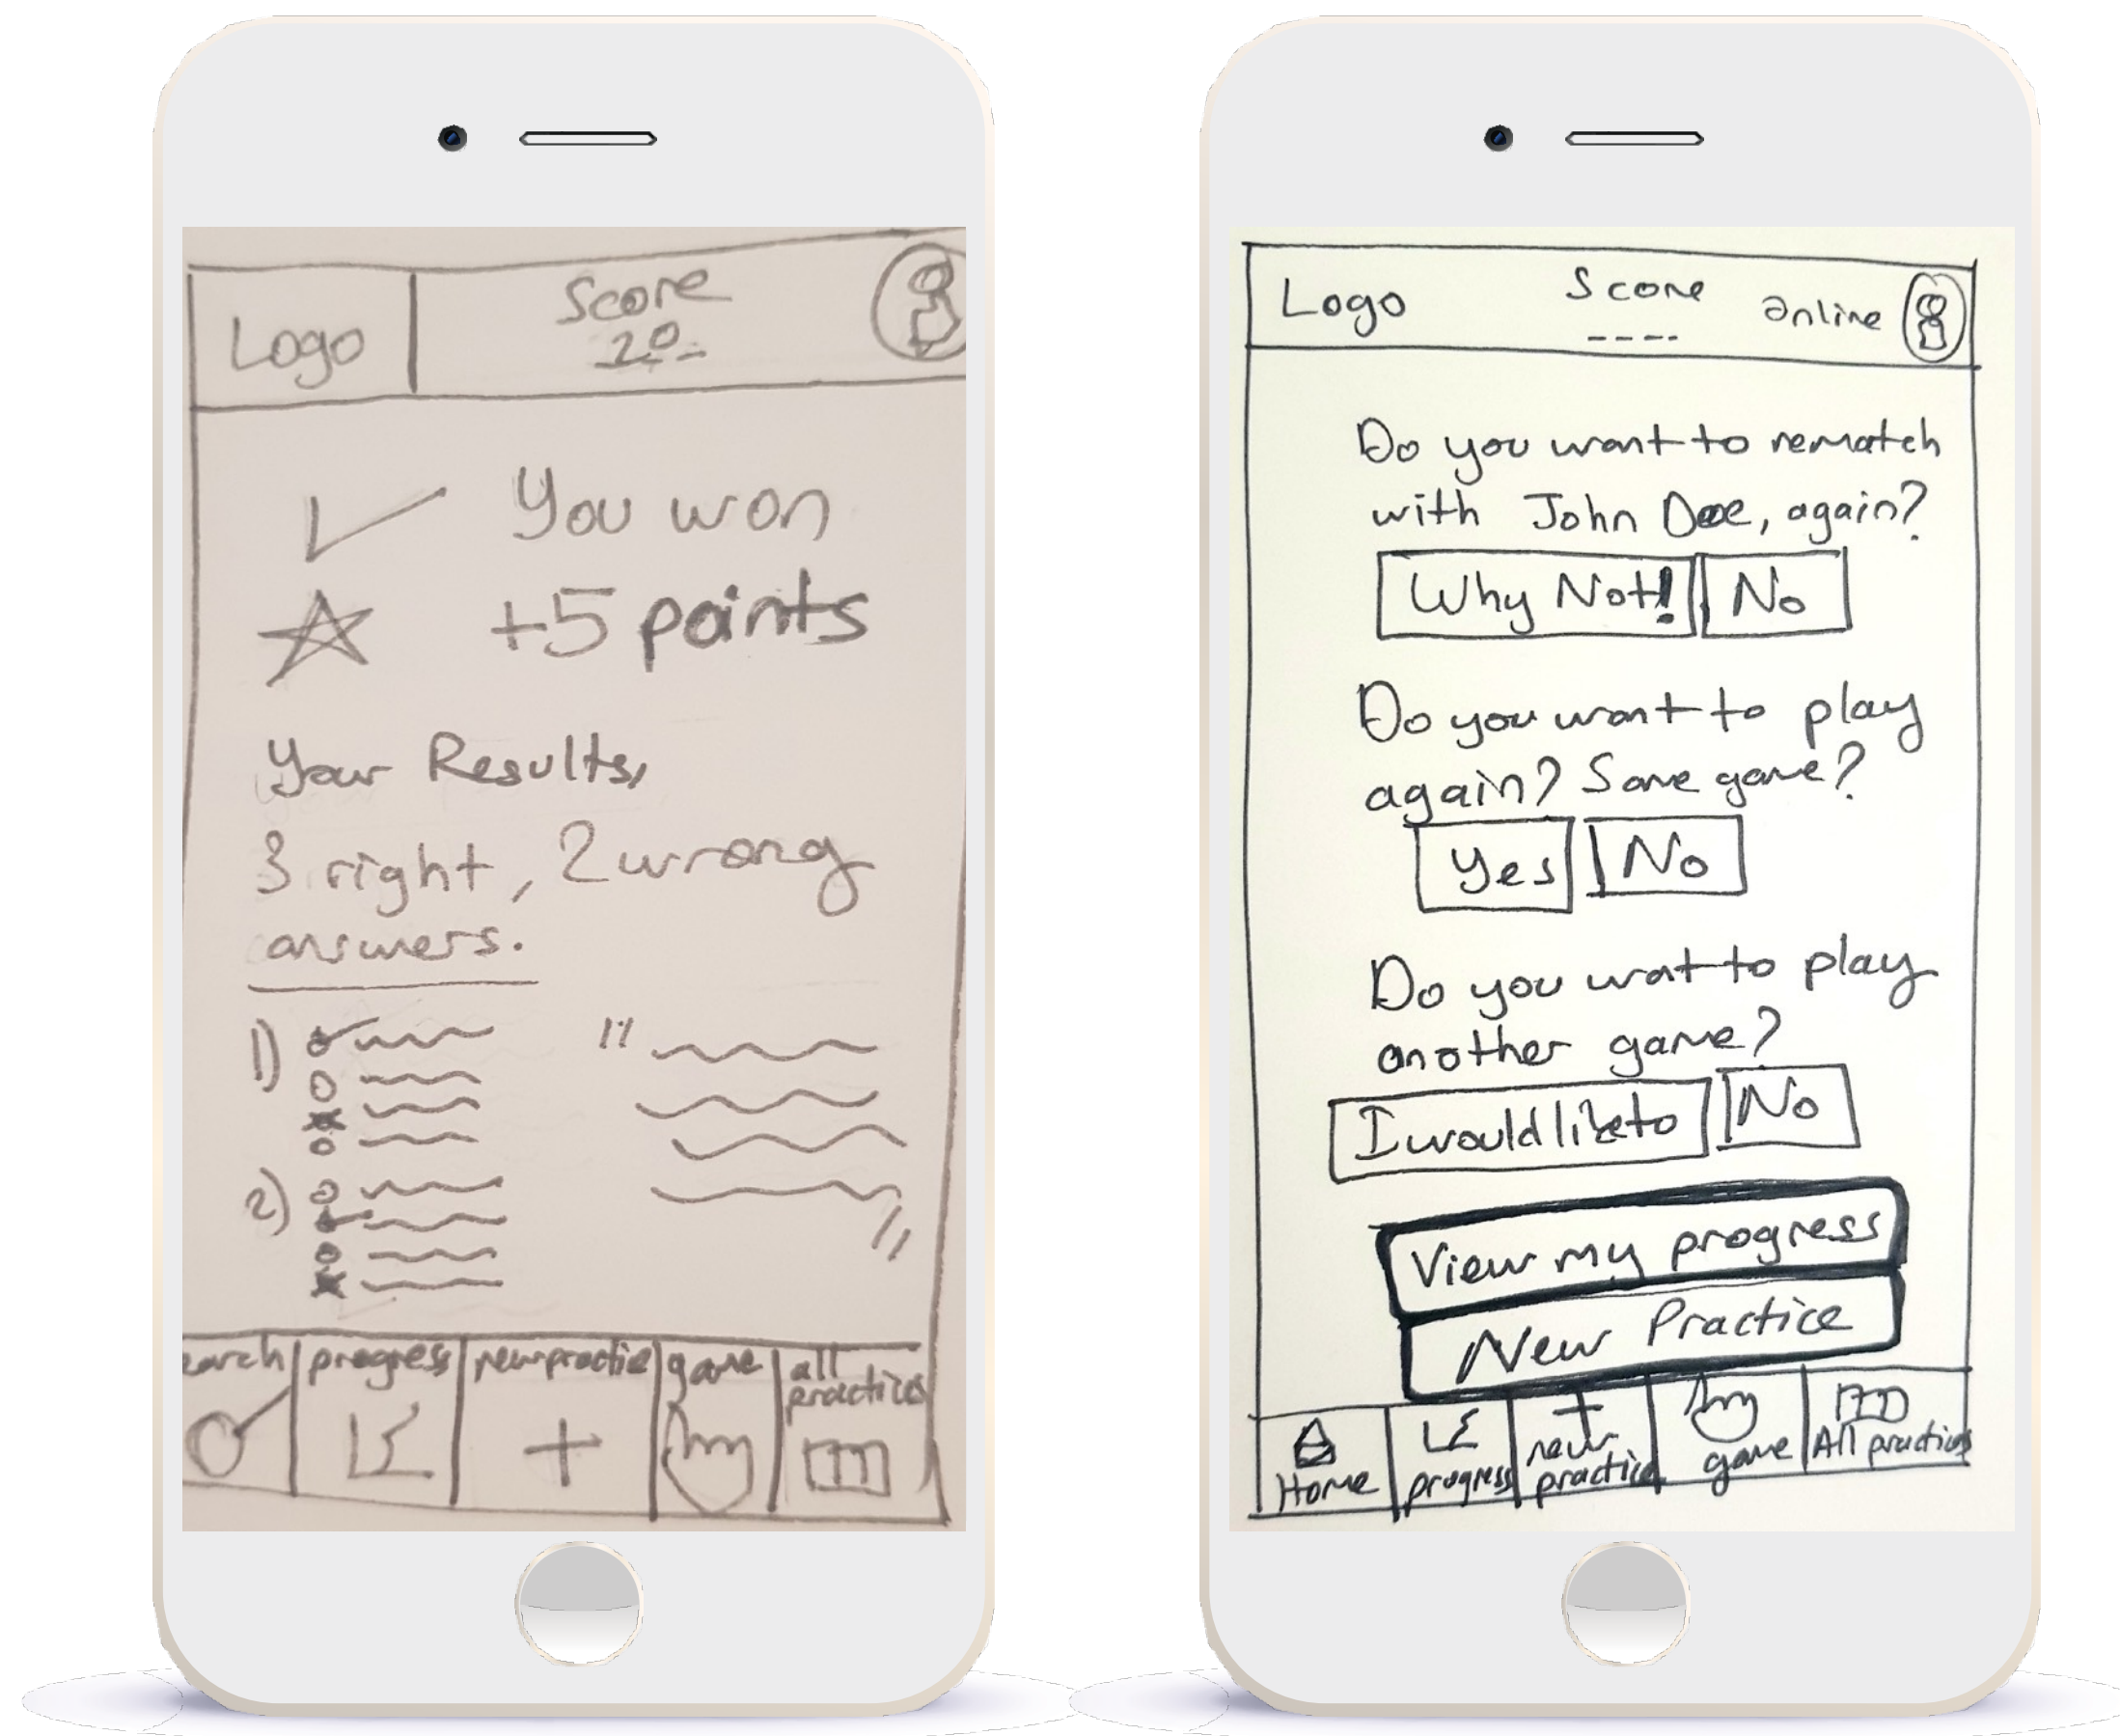 Logo
Score
20
You won
+5 points
Your Results,
3 right, 2 wrong
answers.
1)
2)
earch
progress
new practice
game
all
practices
Logo
Score
online
Do you want to rematch
with John Doe, again?
Why Not!
No
Do you want to play
again? Same game?
Yes
No
Do you wat to play
another game?
I would like to
No
View my progress
New Practice
Home
progress
new
practice
game
All practices